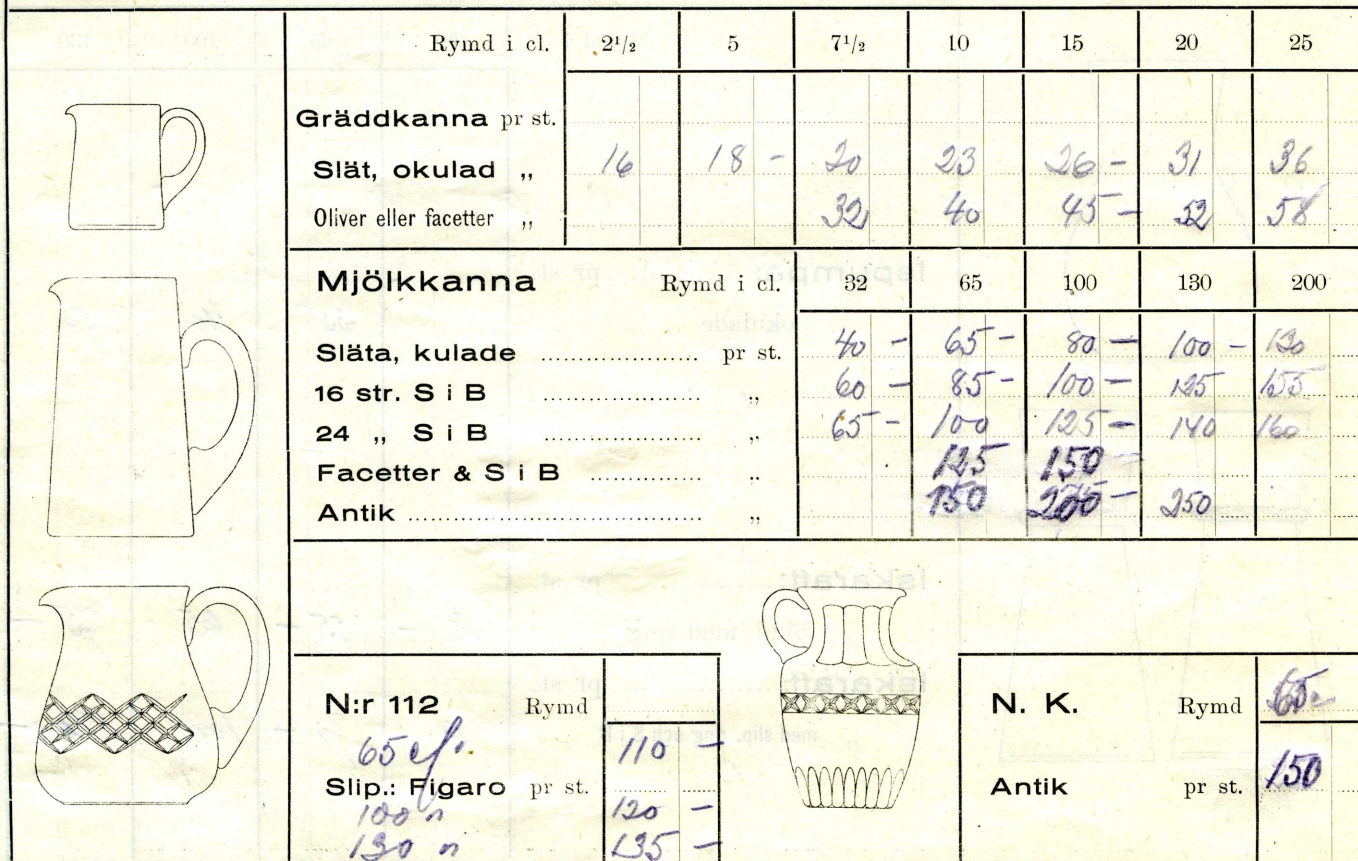 Rymd i cl. 2¹/₂ 5 7¹/₂ 10 15 20 25
Gräddkanna pr st.
Slät, okulad „ 16 18 - 20 23 26 - 31 36
Oliver eller facetter „ 32 40 45 - 52 58
Mjölkkanna Rymd i cl. 32 65 100 130 200
Släta, kulade ........ pr st. 40 - 65 - 80 - 100 - 130
16 str. S i B ........ „ 60 - 85 - 100 - 125 155
24 „ S i B ........ „ 65 - 100 125 - 140 160
Facetter & S i B ........ „ 125 150 -
Antik ........ „ 150 200 - 250
N:r 112 Rymd
65 cl. 110 -
Slip.: Figaro pr st.
100 " 120 -
130 " 135 -
N. K. Rymd 65
Antik pr st. 150